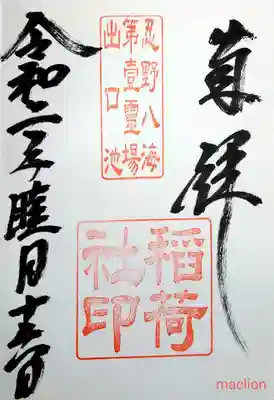 奉拝
忍野八海
第壹靈場
出口池
稲荷
社印
令和二年睦月十三日
maclion